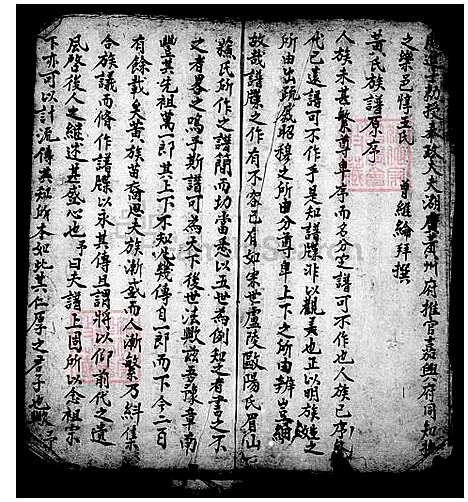 進士初授奉政大夫湖廣黃州府推官嘉興府同知推
之樂邑惇王氏 曾維綸拜撰
黃氏族譜原序
人族未甚繁尊卑序而名分定譜可不作也人族已
代已遠譜可不作乎是知譜牒非以觀美也正以明族姓之
所由出疏戚昭穆之所由分尊卑上下之所由辨豈細
故哉譜牒之作有不容已有如宋世盧陵歐陽氏眉山
蘇氏所作之譜簡而切當悉以五世為例知之者書之不
之者畧之嗚乎斯譜可為天下後世法歟茲吾豫章南
豐其先祖萬一郎其上下不知凡幾傳自一郎而下今二百
有餘載矣黃族苗裔思夫族漸盛而人漸繁乃糾集
合族議而脩作譜牒以永其傳且謂將以仰前代之遺
風啓後人之繼述甚盛心也予曰夫譜上固所以念祖宗
下亦可以計流傳其知所本如此其仁厚之君子也歟